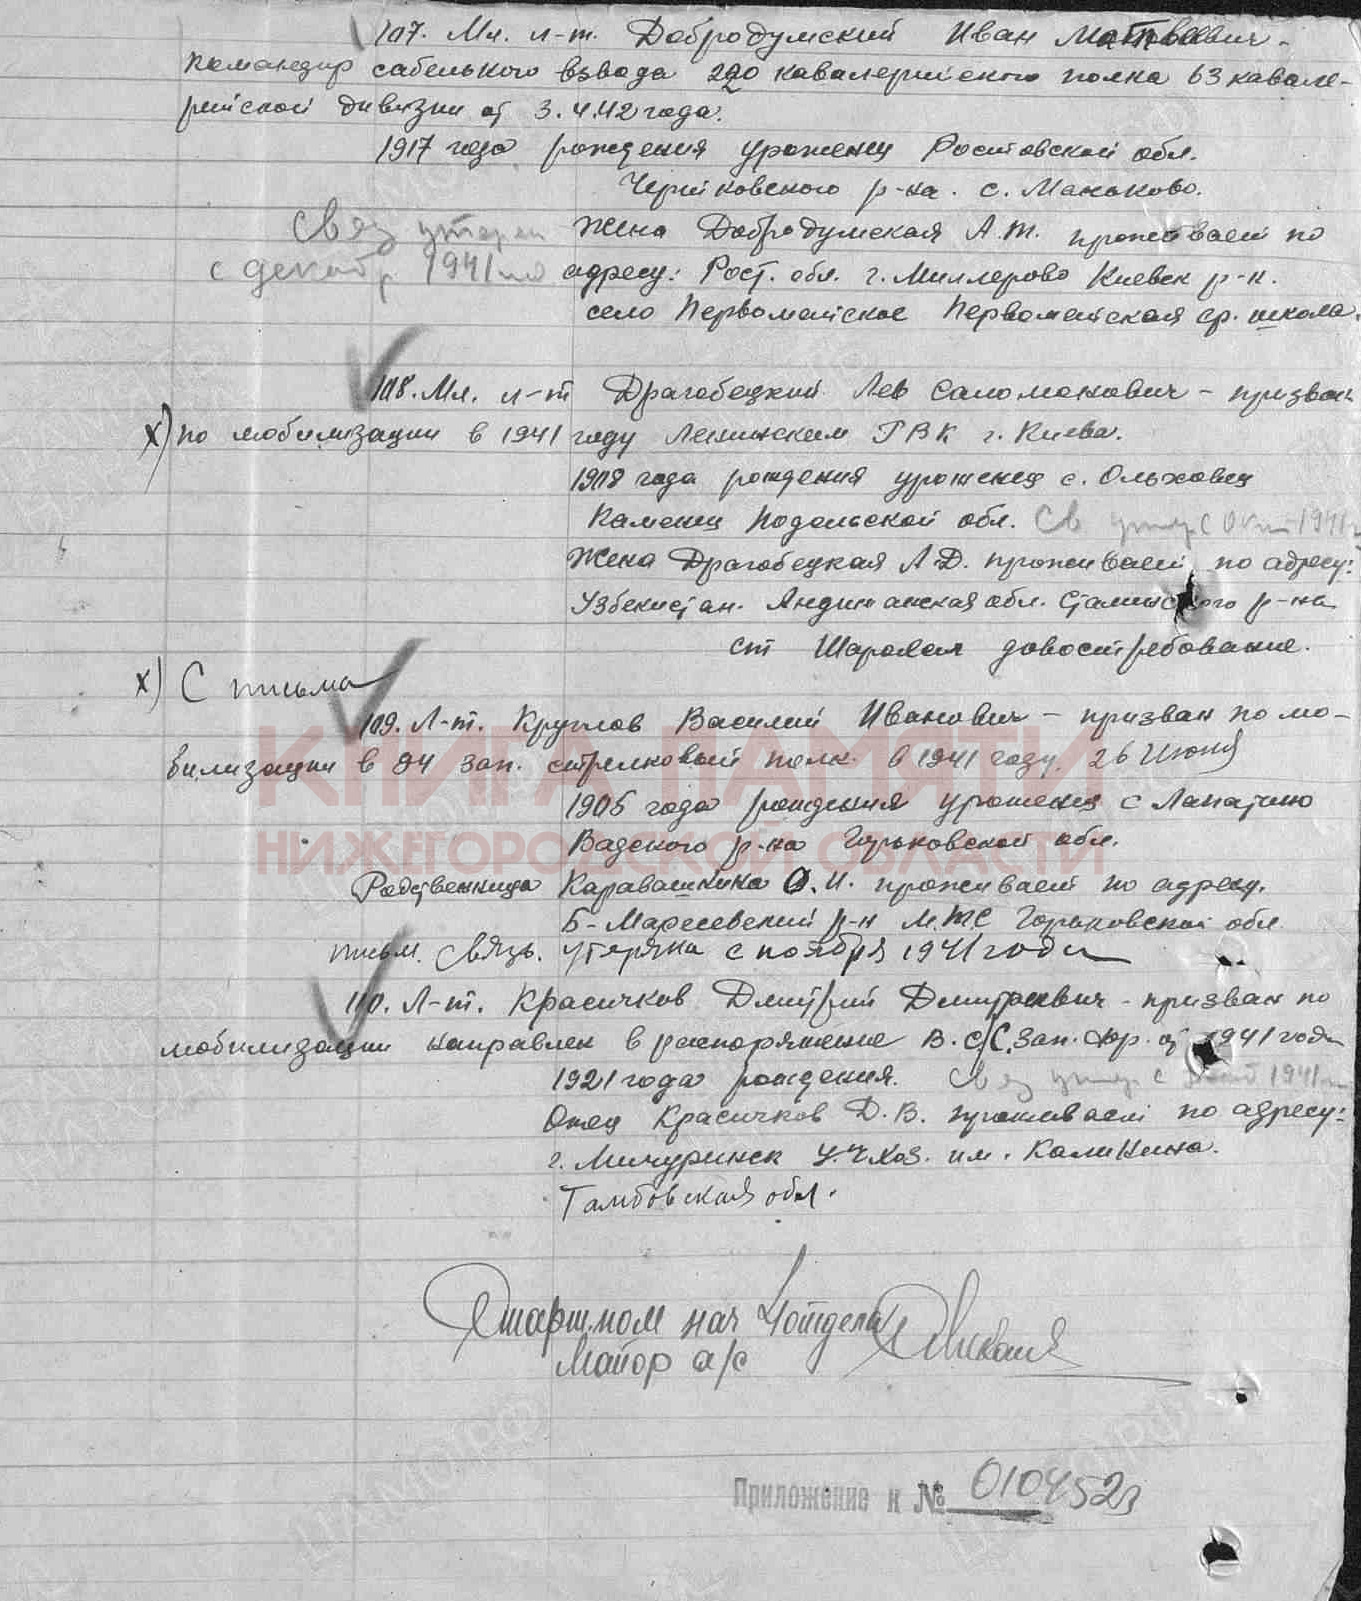 107. Мл. л-т. Добродумский Иван Матвеевич -
командир сабельного взвода 220 кавалерийского полка 63 кавале-
рийской дивизии от 3.4.42 года.
1917 года рождения уроженец Ростовской обл.
Чертковского р-на. с. Маньково.
Связ утерен
с декабр 1941 го
Жена Добродумская А.Т. проживает по
адресу: Рост. обл. г. Миллерово Киевск р-н.
село Первомайское Первомайская ср. школа.
108. Мл. л-т Драгобецкий Лев Саломонович - призван
х) по мобилизации в 1941 году Ленинским ГВК г. Киева.
1908 года рождения уроженец с. Ольховец
Каменец Подольской обл. Св утер с Окт 1941 г
Жена Драгобецкая Л.Д. проживает по адресу:
Узбекистан. Андижанская обл. Сталинского р-на
ст довостребование.
х) С письма
109. Л-т. Круглов Василий Иванович - призван по мо-
билизации в 94 зап. стрелковый полк. в 1941 году. 26 Июня
1905 года рождения уроженец с Лапатино
Вадского р-на Горьковской обл.
Родственница Каравашкина О.И. проживает по адресу.
Б-Маресевский р-н М.Т.С Горьковской обл.
письм. связь. утеряна с ноября 1941 года
110. Л-т. Красичков Дмитрий Дмитриевич - призван по
мобилизации направлен в распоряжение В.С/С. Зап. Фр. от 1941 года
1921 года рождения. Связ утер с 1941 г
Отец Красичков Д.В. проживает по адресу:
г. Мичуринск У.Ч.хоз. им. Калинина.
Тамбовская обл.
Старш. пом нач 4 отдела
Майор а/с
Приложение к № 0104523
КНИГА ПАМЯТИ
НИЖЕГОРОДСКОЙ ОБЛАСТИ
ЦАМО РФ